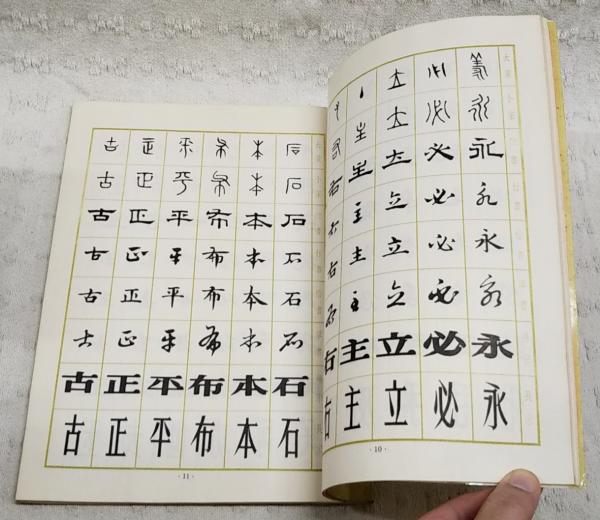 永永永永永永永永
必必必必必必必必
立立立立立立立立
主主主主主主主主
右右右右右右右右
·10·
石石石石石石石石
本本本本本本本本
布布布布布布布布
平平平平平平平平
正正正正正正正正
古古古古古古古古
·11·